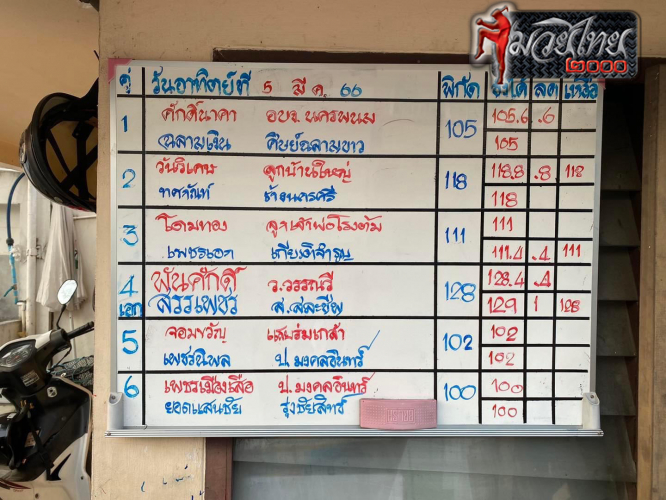 มวยไทย
๒๐๐๐
คู่ วันอาทิตย์ที่ 5 มี ค. 66 พิกัด ชั่งได้ ลด เหลือ
1 ศักดิ์นาคา อบจ.นครพนม 105 105.6 .6
ฉลามเงิน ศิษย์ฉลามขาว 105
2 วันวิเศษ ลูกบ้านใหญ่ 118 118.8 .8 118
ช้างนครศรี 118
3 โดมทอง ลูกเจ้าพ่อโรงต้ม 111 111
เพชรเอก เกียรติสำรูญ 111.4 .4 111
4 พันศักดิ์ ว.วรรณวี 128 128.4 .4
เอก สรรเพชร ส.สละชีพ 129 1 128
5 จอมขวัญ 102 102
เพชรนิพล ป.มงคลอินทร์ 102
6 เพชรเมืองเสือ ป.มงคลอินทร์ 100 100
ยอดแสนชัย รุ่งชัยสิทธิ์ 100